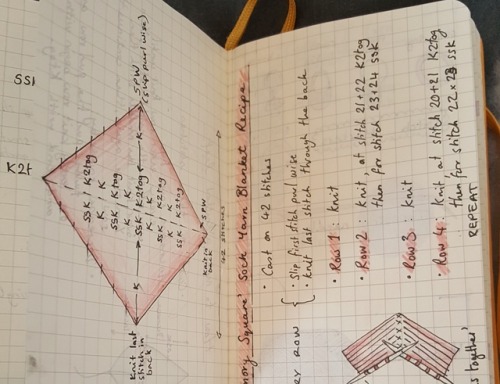 SSI
K2t
SPW
(slip purlwise)
K
SSK / K2tog
K / K
SSK / K2tog
K / K
SSK / K2tog
K / K
SSK / K2tog
K / K
SSK / K2tog
K
SPW
Knit in
back
Knit last
stitch in
back
42 stitches
mory Square' Sock Yarn Blanket Recipe
• Cast on 42 stitches
er row
• Slip first stitch purlwise
• Knit last stitch through the back
• Row 1 : knit
• Row 2 : knit, at stitch 21+22 K2tog
then for stitch 23+24 SSK
• Row 3 : knit
• Row 4 : Knit at stitch 20+21 K2tog
then for stitch 22 x SSK
REPEAT
s together'